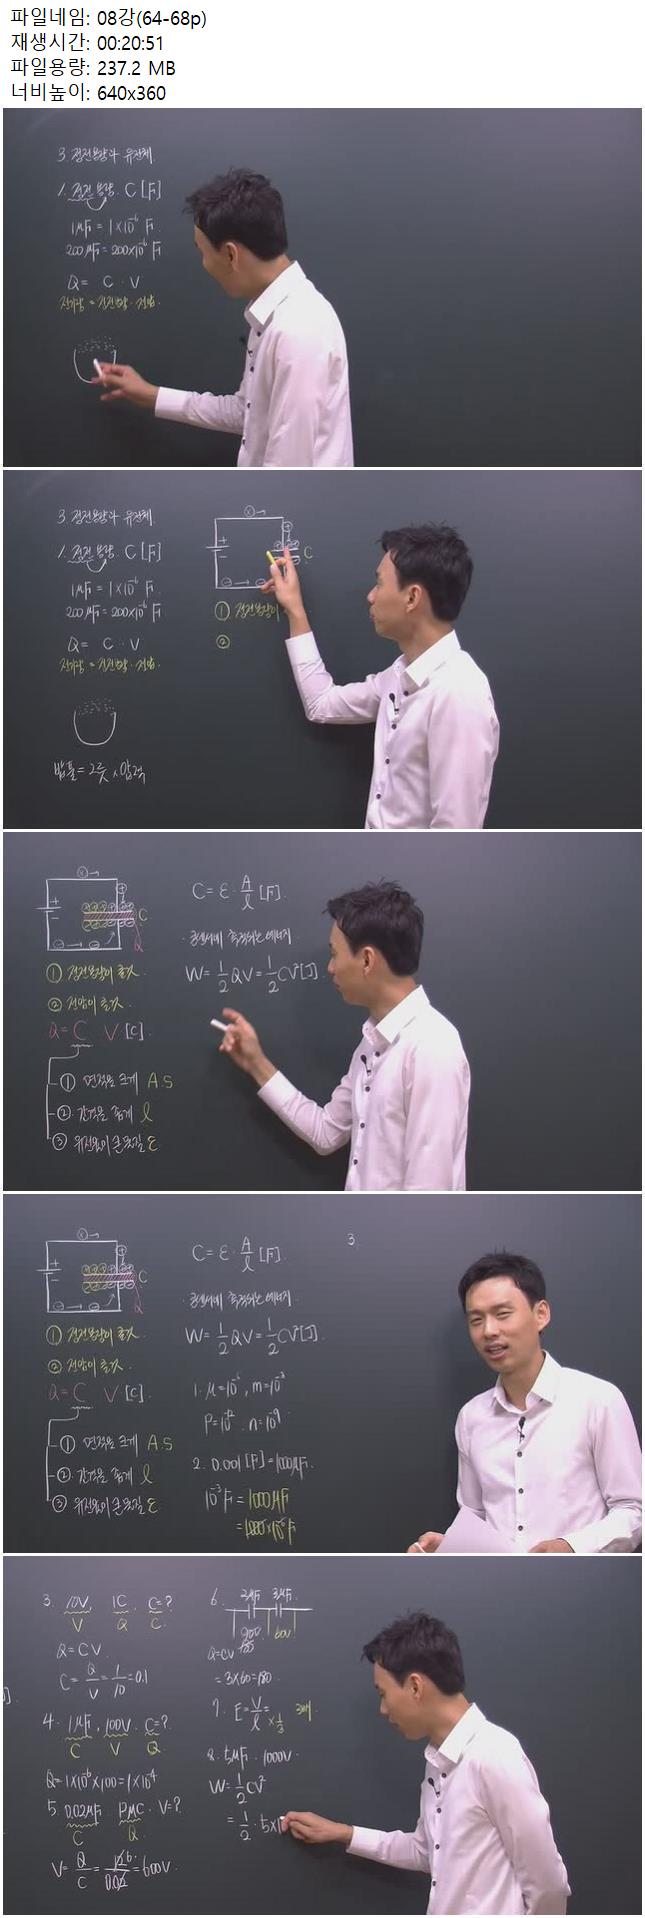 파일네임: 08강(64-68p)
재생시간: 00:20:51
파일용량: 237.2 MB
너비높이: 640x360
3. 정전용량과 유전체.
1. 정전용량. C [F]
1μF = 1×10⁻⁶ F
200μF = 200×10⁻⁶ F
Q = C · V
전기량 = 정전용량 · 전압.
3. 정전용량과 유전체.
1. 정전용량. C [F]
1μF = 1×10⁻⁶ F
200μF = 200×10⁻⁶ F
Q = C · V
전기량 = 정전용량 · 전압.
밥풀 = 그릇 × 압력
+
−
C
① 정전용량이
②
+
−
C
Q
① 정전용량이 클것.
② 전압이 클것.
Q = C V [C].
① 면적을 크게 A.S
② 간격을 좁게 l
③ 유전율이 큰 물질 ε
C = ε · A/l [F].
· 콘덴서에 축적되는 에너지
W = 1/2 QV = 1/2 CV² [J].
+
−
C
Q
① 정전용량이 클것.
② 전압이 클것.
Q = C V [C].
① 면적을 크게 A.S
② 간격을 좁게 l
③ 유전율이 큰 물질 ε
C = ε · A/l [F].
· 콘덴서에 축적되는 에너지
W = 1/2 QV = 1/2 CV² [J].
1. μ=10⁻⁶, m=10⁻³
P=10⁻¹². n=10⁻⁹
2. 0.001 [F] = 1000μF.
10⁻³F = 1000μF
= 1000×10⁻⁶F
3.
3. 10V, 1C C=?
V Q C
Q = CV
C = Q/V = 1/10 = 0.1
4. 1μF, 100V. C=?
C V Q
Q = 1×10⁻⁶×100 = 1×10⁻⁴
5. 0.02μF. 12μC. V=?
C Q
V = Q/C = 12/0.02 = 600V.
6. 2μF 3μF.
60V
Q=CV
= 3×60=180.
7. E = V/l = ×1/3
8. 5μF. 1000V.
W = 1/2 CV²
= 1/2 · 5×1